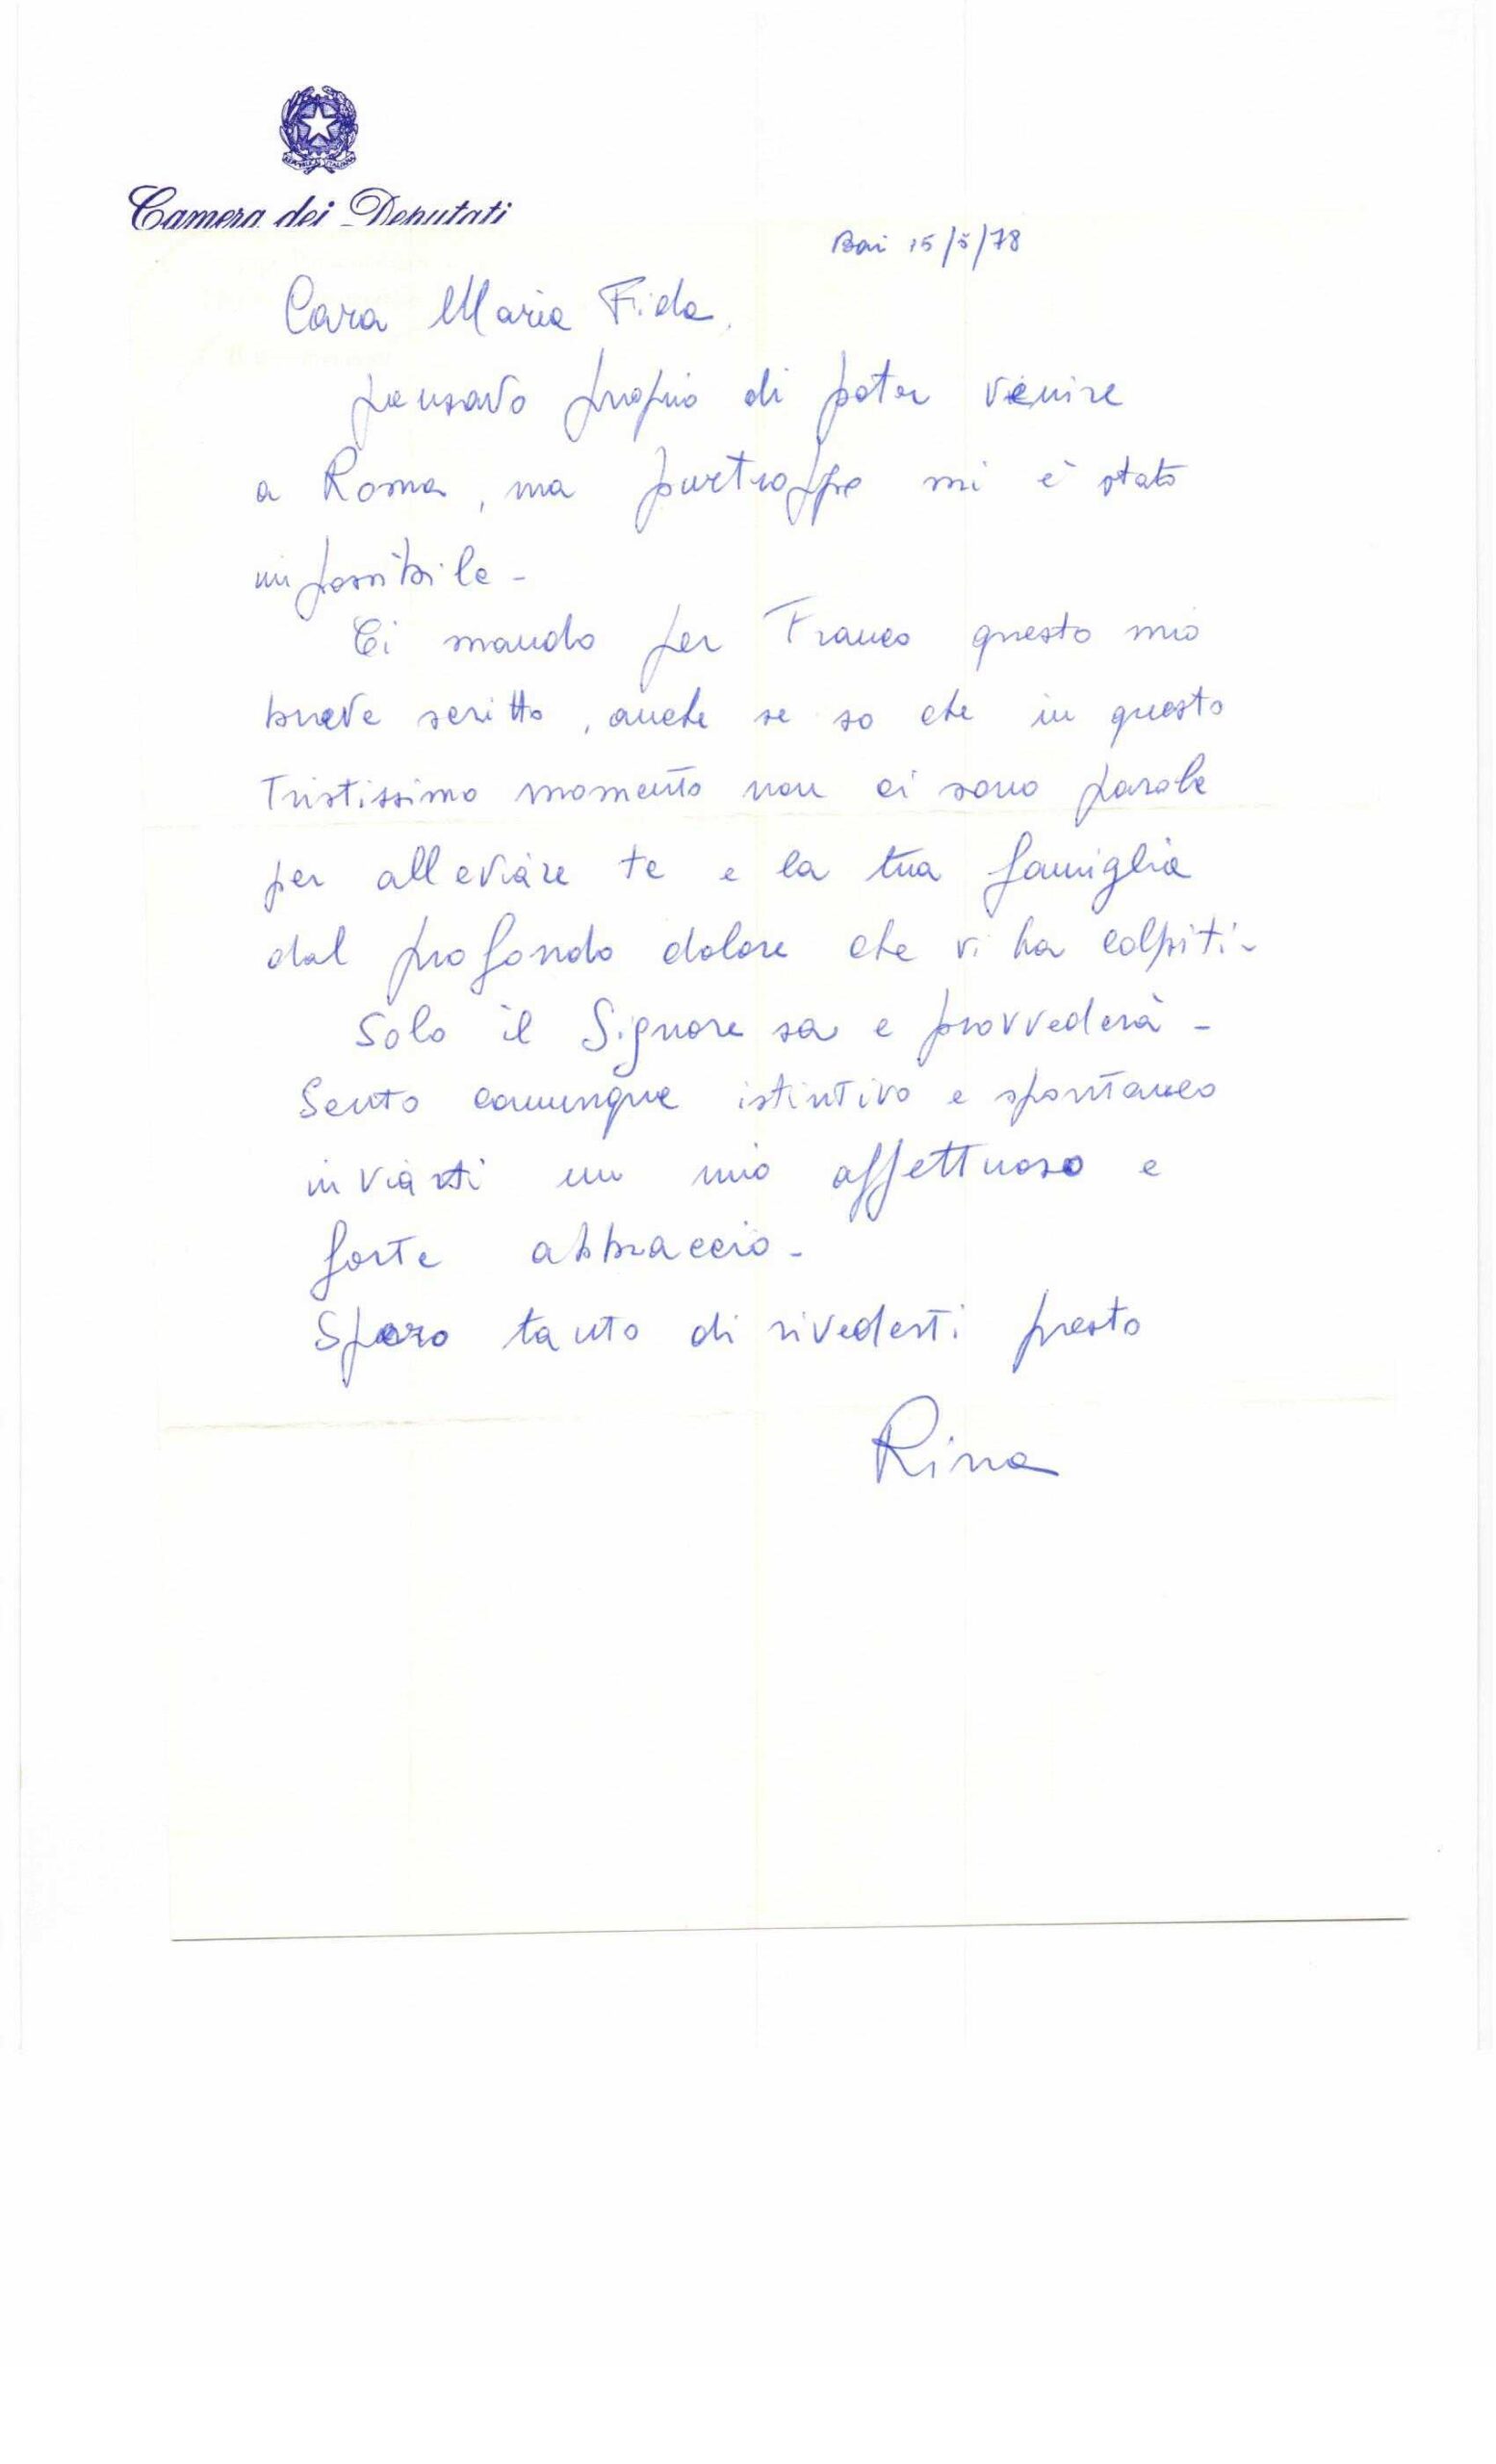 Camera dei Deputati
Bari 15/5/78
Cara Maria Fida,
pensavo proprio di poter venire
a Roma, ma purtroppo mi è stato
impossibile -
Ti mando per Franco questo mio
breve scritto, anche se so che in questo
tristissimo momento non ci sono parole
per alleviare te e la tua famiglia
dal profondo dolore che vi ha colpiti -
Solo il Signore sa e provvederà -
Sento comunque istintivo e spontaneo
inviarti un mio affettuoso e
forte abbraccio -
Spero tanto di rivederti presto
Rina